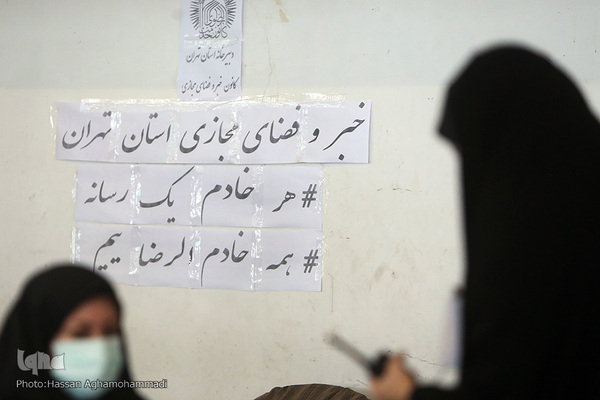 دبیرخانه استان تهران
کانون خبر و فضای مجازی
خبر و فضای مجازی استان تهران
#هر خادم یک رسانه
#همه خادم الرضا ییم
iqna
Photo:Hassan Aghamohammadi